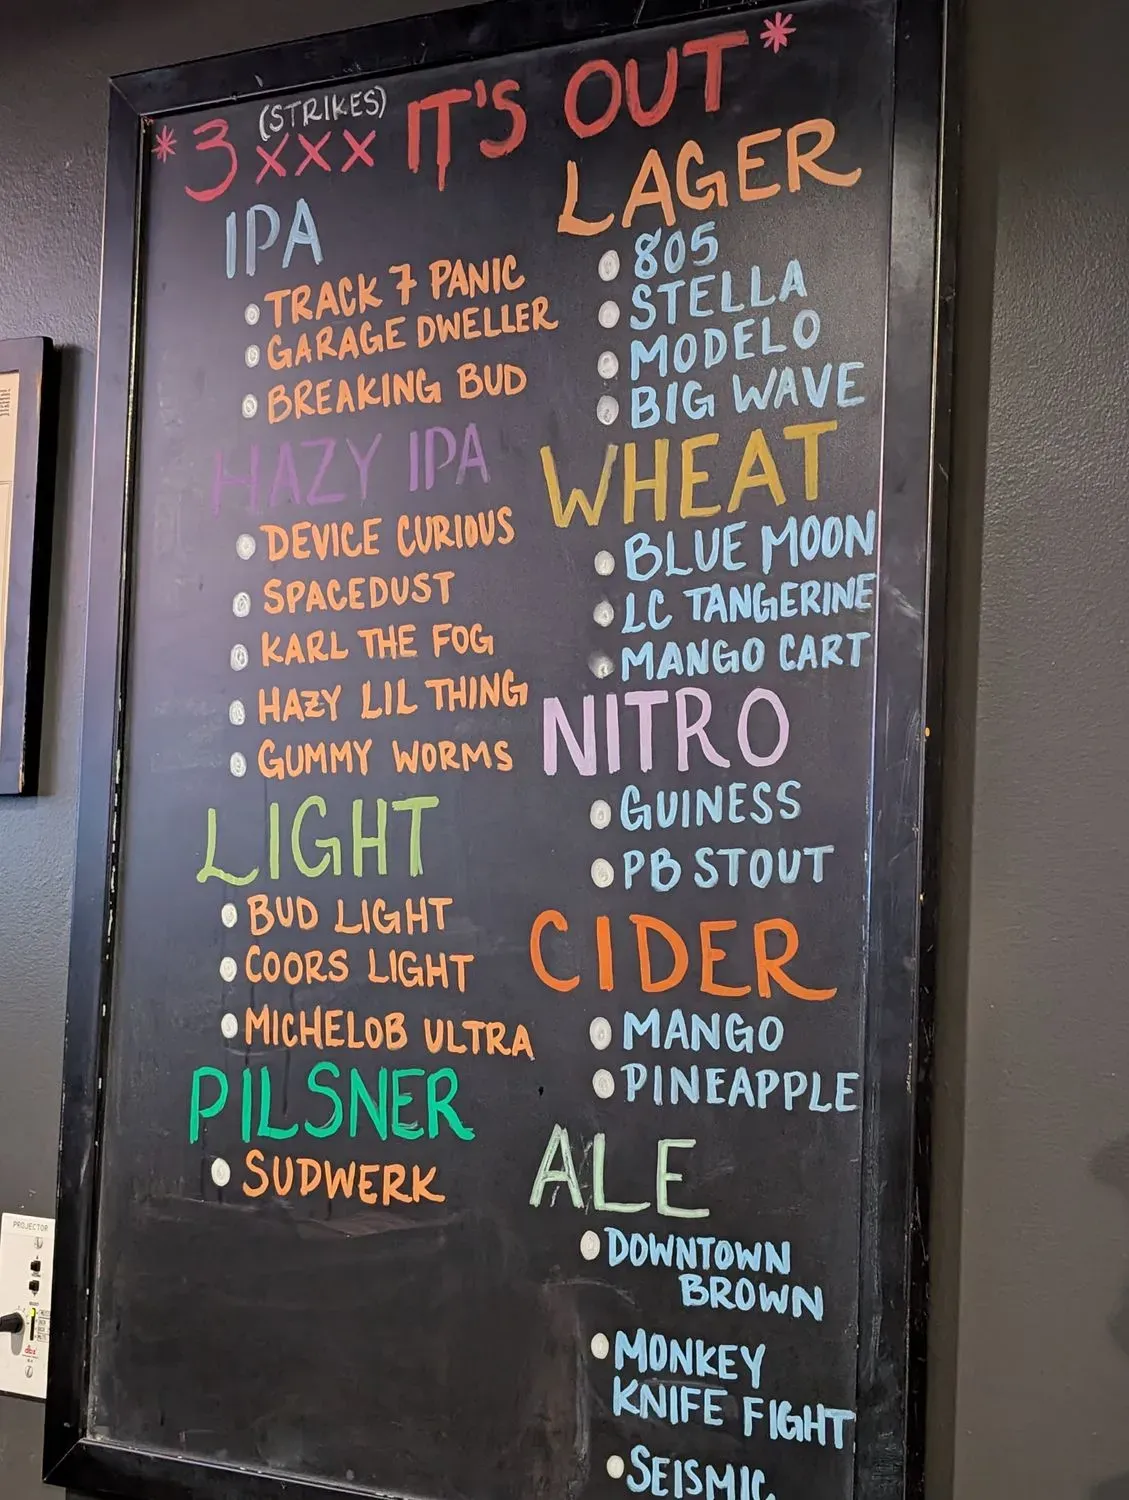 (STRIKES)
*3 XXX IT'S OUT*
IPA
TRACK 7 PANIC
GARAGE DWELLER
BREAKING BUD
HAZY IPA
DEVICE CURIOUS
SPACEDUST
KARL THE FOG
HAZY LIL THING
GUMMY WORMS
LIGHT
BUD LIGHT
COORS LIGHT
MICHELOB ULTRA
PILSNER
SUDWERK
LAGER
805
STELLA
MODELO
BIG WAVE
WHEAT
BLUE MOON
LC TANGERINE
MANGO CART
NITRO
GUINESS
PB STOUT
CIDER
MANGO
PINEAPPLE
ALE
DOWNTOWN
BROWN
MONKEY
KNIFE FIGHT
SEISMIC
PROJECTOR
dbx